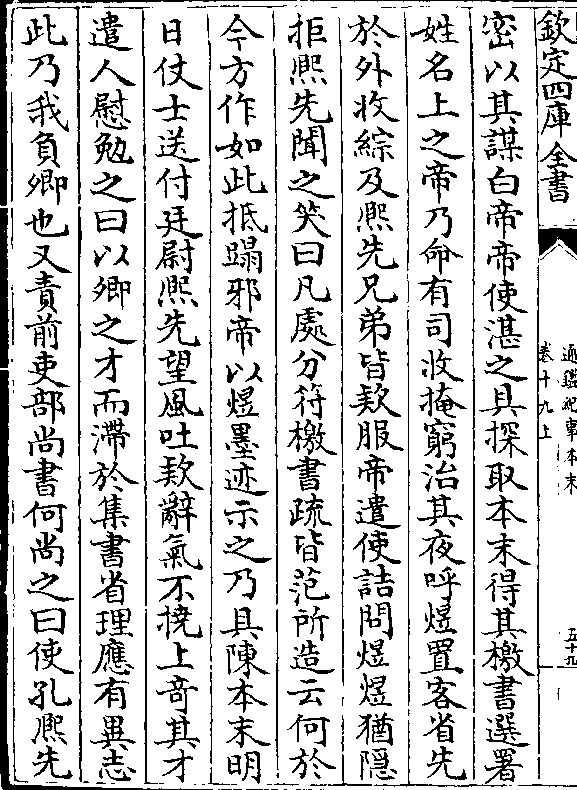 欽定四庫全書
通鑑紀事本末
卷十九上
五十九
密以其謀白帝帝使湛之具探取本末得其檄書選署
姓名上之帝乃命有司收掩窮治其夜呼煜置客省先
於外收綜及熈先兄弟皆欵服帝遣使詰問煜煜猶隠
拒熈先聞之笑曰凡處分符檄書疏皆范所造云何於
今方作如此抵蹋邪帝以煜墨迹示之乃具陳本末明
日仗士送付廷尉熈先望風吐欵辭氣不撓上竒其才
遣人慰勉之曰以卿之才而滯於集書省理應有異志
此乃我負卿也又責前吏部尚書何尚之曰使孔熈先